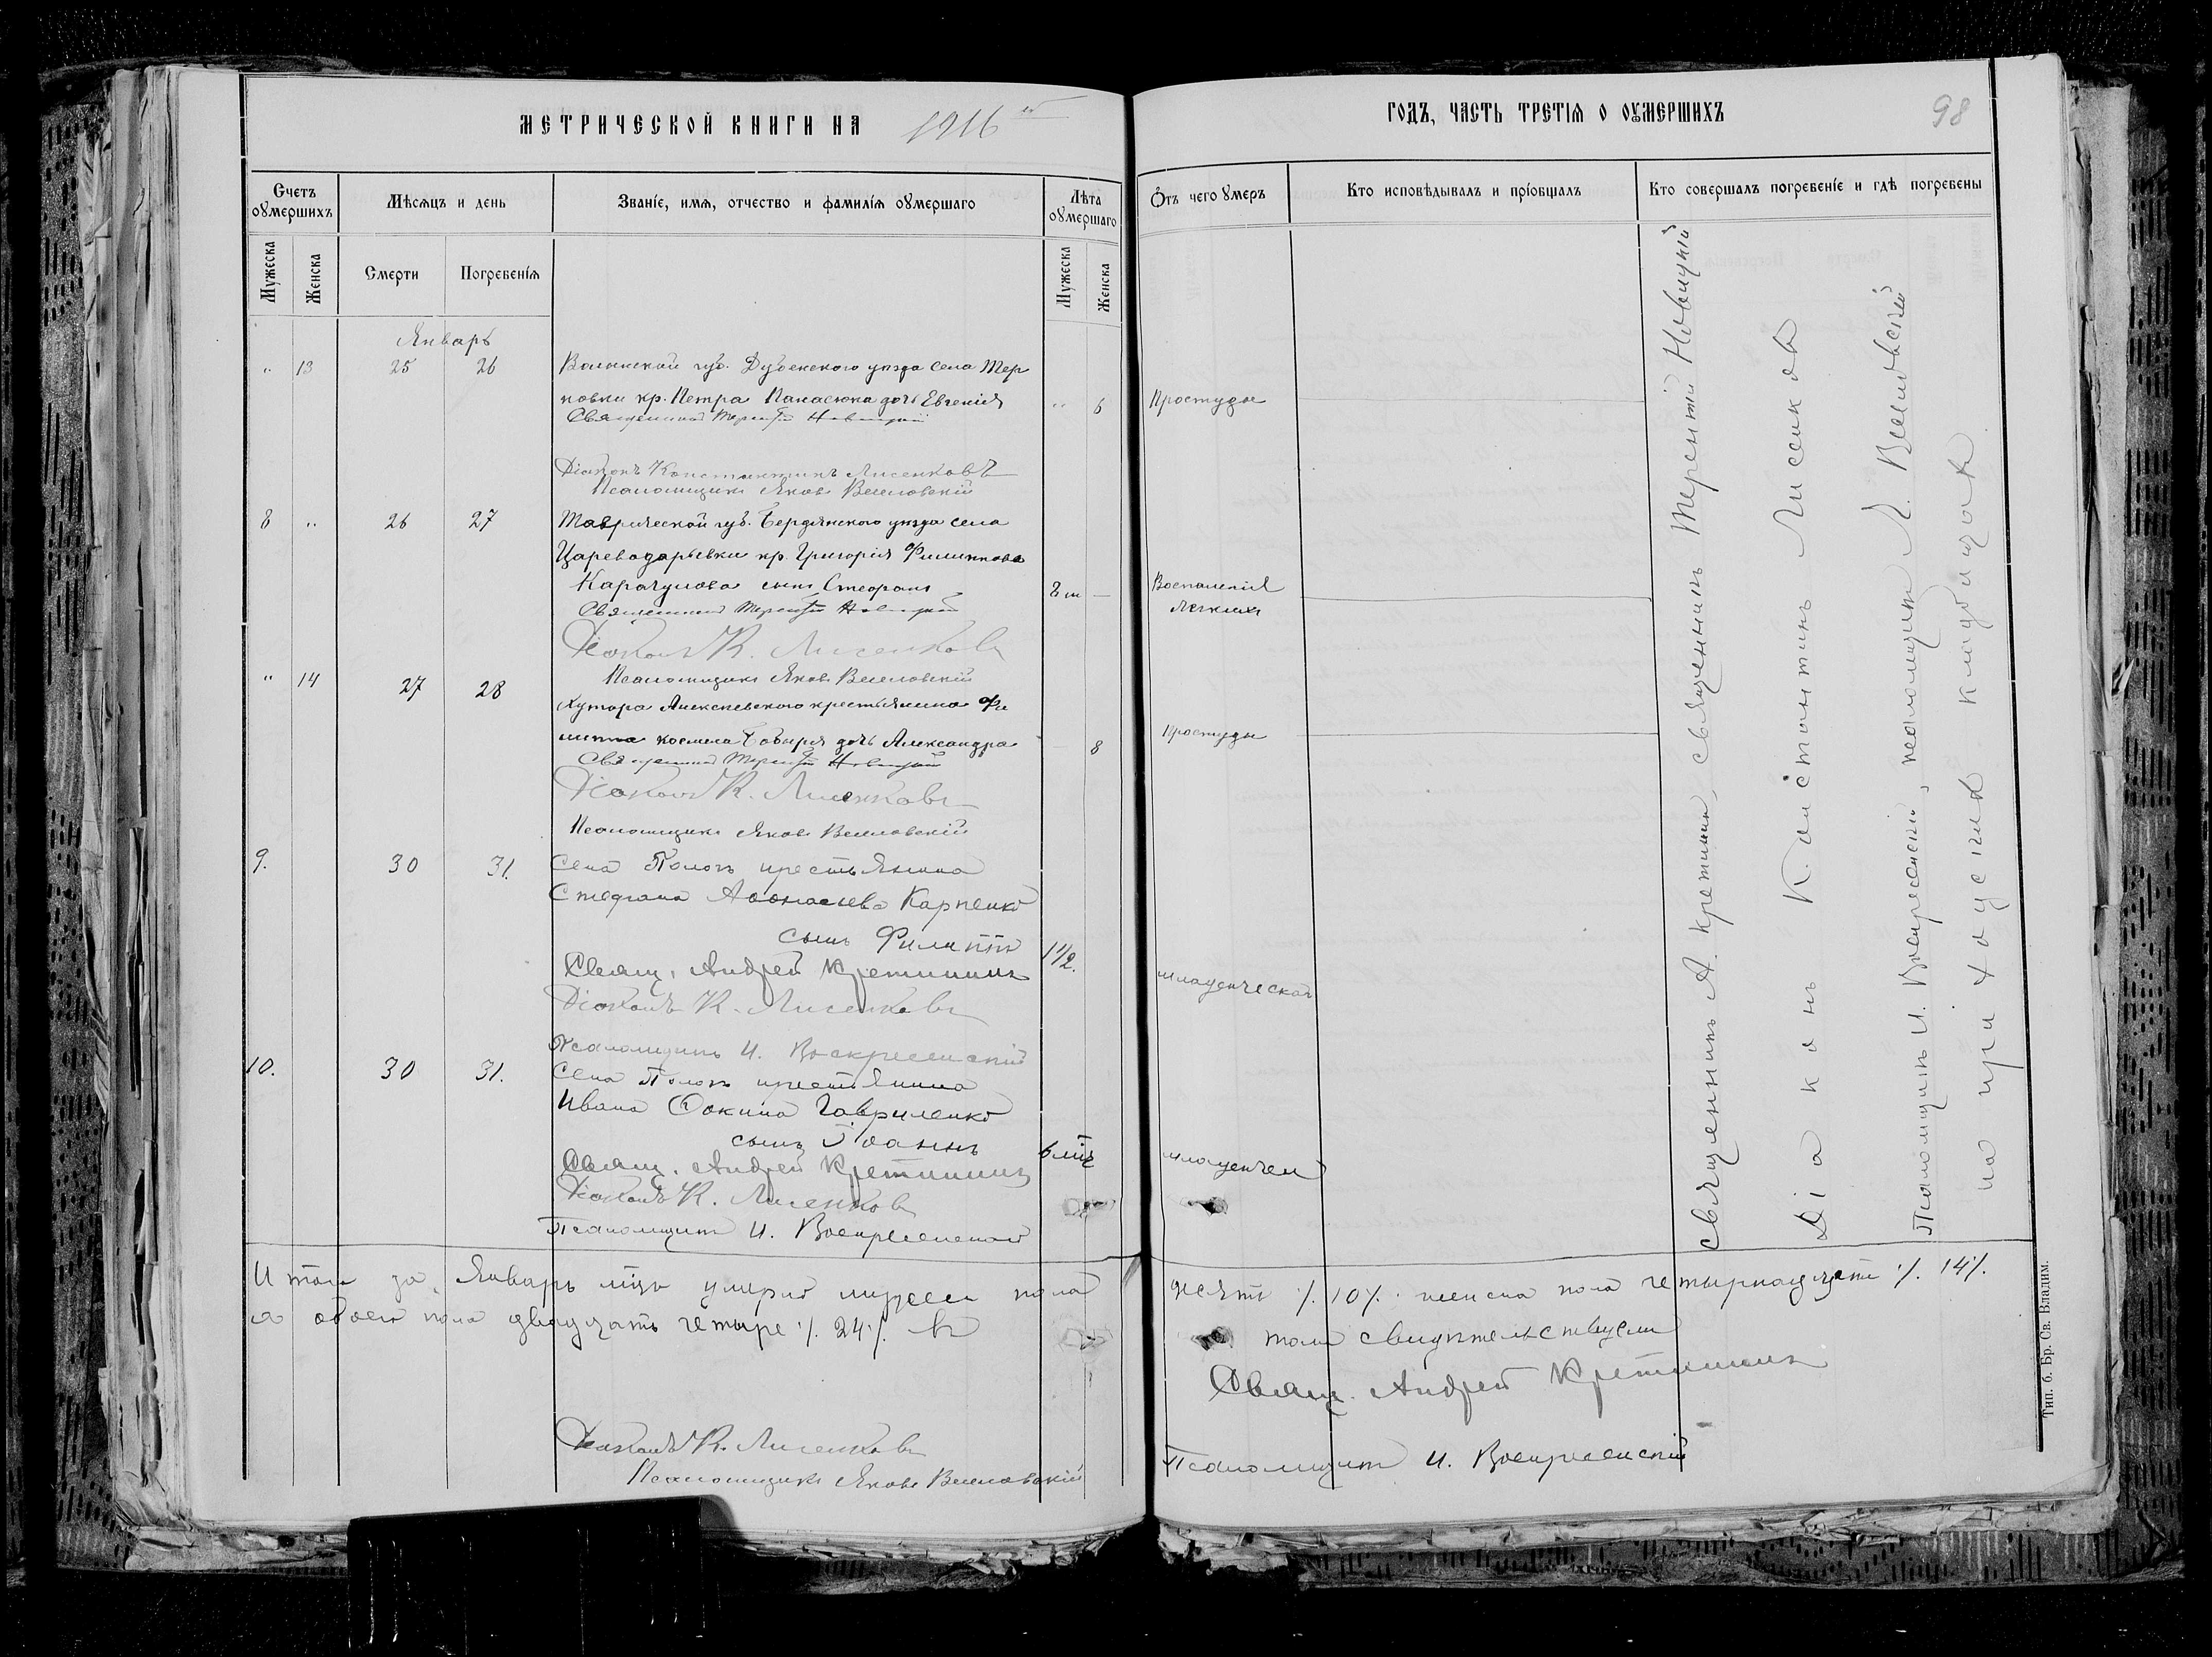 МЕТРИЧЕСКОЙ КНИГИ НА 1916 ый
ГОДЪ, ЧАСТЬ ТРЕТІЯ О ОУМЕРШИХЪ
98
Счетъ оумершихъ
Мѣсяцъ и день
Званіе, имя, отчество и фамилія оумершаго
Лѣта оумершаго
Мужеска
Женска
Смерти
Погребенія
Мужеска
Женска
Отъ чего умеръ
Кто исповѣдывалъ и пріобщалъ
Кто совершалъ погребеніе и гдѣ погребены
Январь
" 13 25 26 Волынской губ. Дубенскаго уѣзда села Тер
новки кр. Петра Панасюка дочь Евгенія " 6 Простуды
Священникъ Терентій Новицкій
Діаконъ Константинъ Лисенковъ
Псаломщикъ Яковъ Веселовскій
8 " 26 27 Таврической губ. Бердянскаго уѣзда села
Цареводаровки кр. Григорія Филиппова
Карачулова сынъ Стефанъ 8 м — Воспаленія
легкихъ
Священникъ Терентій Новицкій
Діаконъ К. Лисенковъ
Псаломщикъ Яковъ Веселовскій
" 14 27 28
Хутора Алексѣевского крестьянина Фи
липпа Бобыря дочь Александра 8 Простуды
Священникъ Терентій Новицкій
Діаконъ К. Лисенковъ
Псаломщикъ Яковъ Веселовскій
9. 30 31. Села Пологъ крестьянина
Стефана Аѳонасіева Карпенко
сынъ Филиппъ 1 1/2. младенческой
Свящ. Андрей Кретининъ
Діаконъ К. Лисенковъ
Псаломщикъ И. Воскресенскій
10. 30 31. Села Пологъ крестьянина
Ивана Ѳокина Гавриленко
сынъ Іоаннъ 6 мѣс младенчес
Свящ. Андрей Кретининъ
Діаконъ К. Лисенковъ
Псаломщикъ И. Воскресенскій
Священникъ А. Кретининъ, священникъ Терентій Новицкій
Діаконъ Константинъ Лисенковъ
Псаломщикъ И. Воскресенскій, псаломщикъ Я. Веселовскій
на приходскомъ кладбищѣ
Итого за Январь мѣсяцъ умерло мужеска пола десять ·/. 10 ·/. женска пола четырнадцать ·/. 14 ·/.
а обоего пола двадцать четыре ·/. 24 ·/. въ томъ свидѣтельствуемъ
Свящ. Андрей Кретининъ
Діаконъ К. Лисенковъ
Псаломщикъ Яковъ Веселовскій
Псаломщикъ И. Воскресенскій
Тип. б. Бр. Св. Владим.